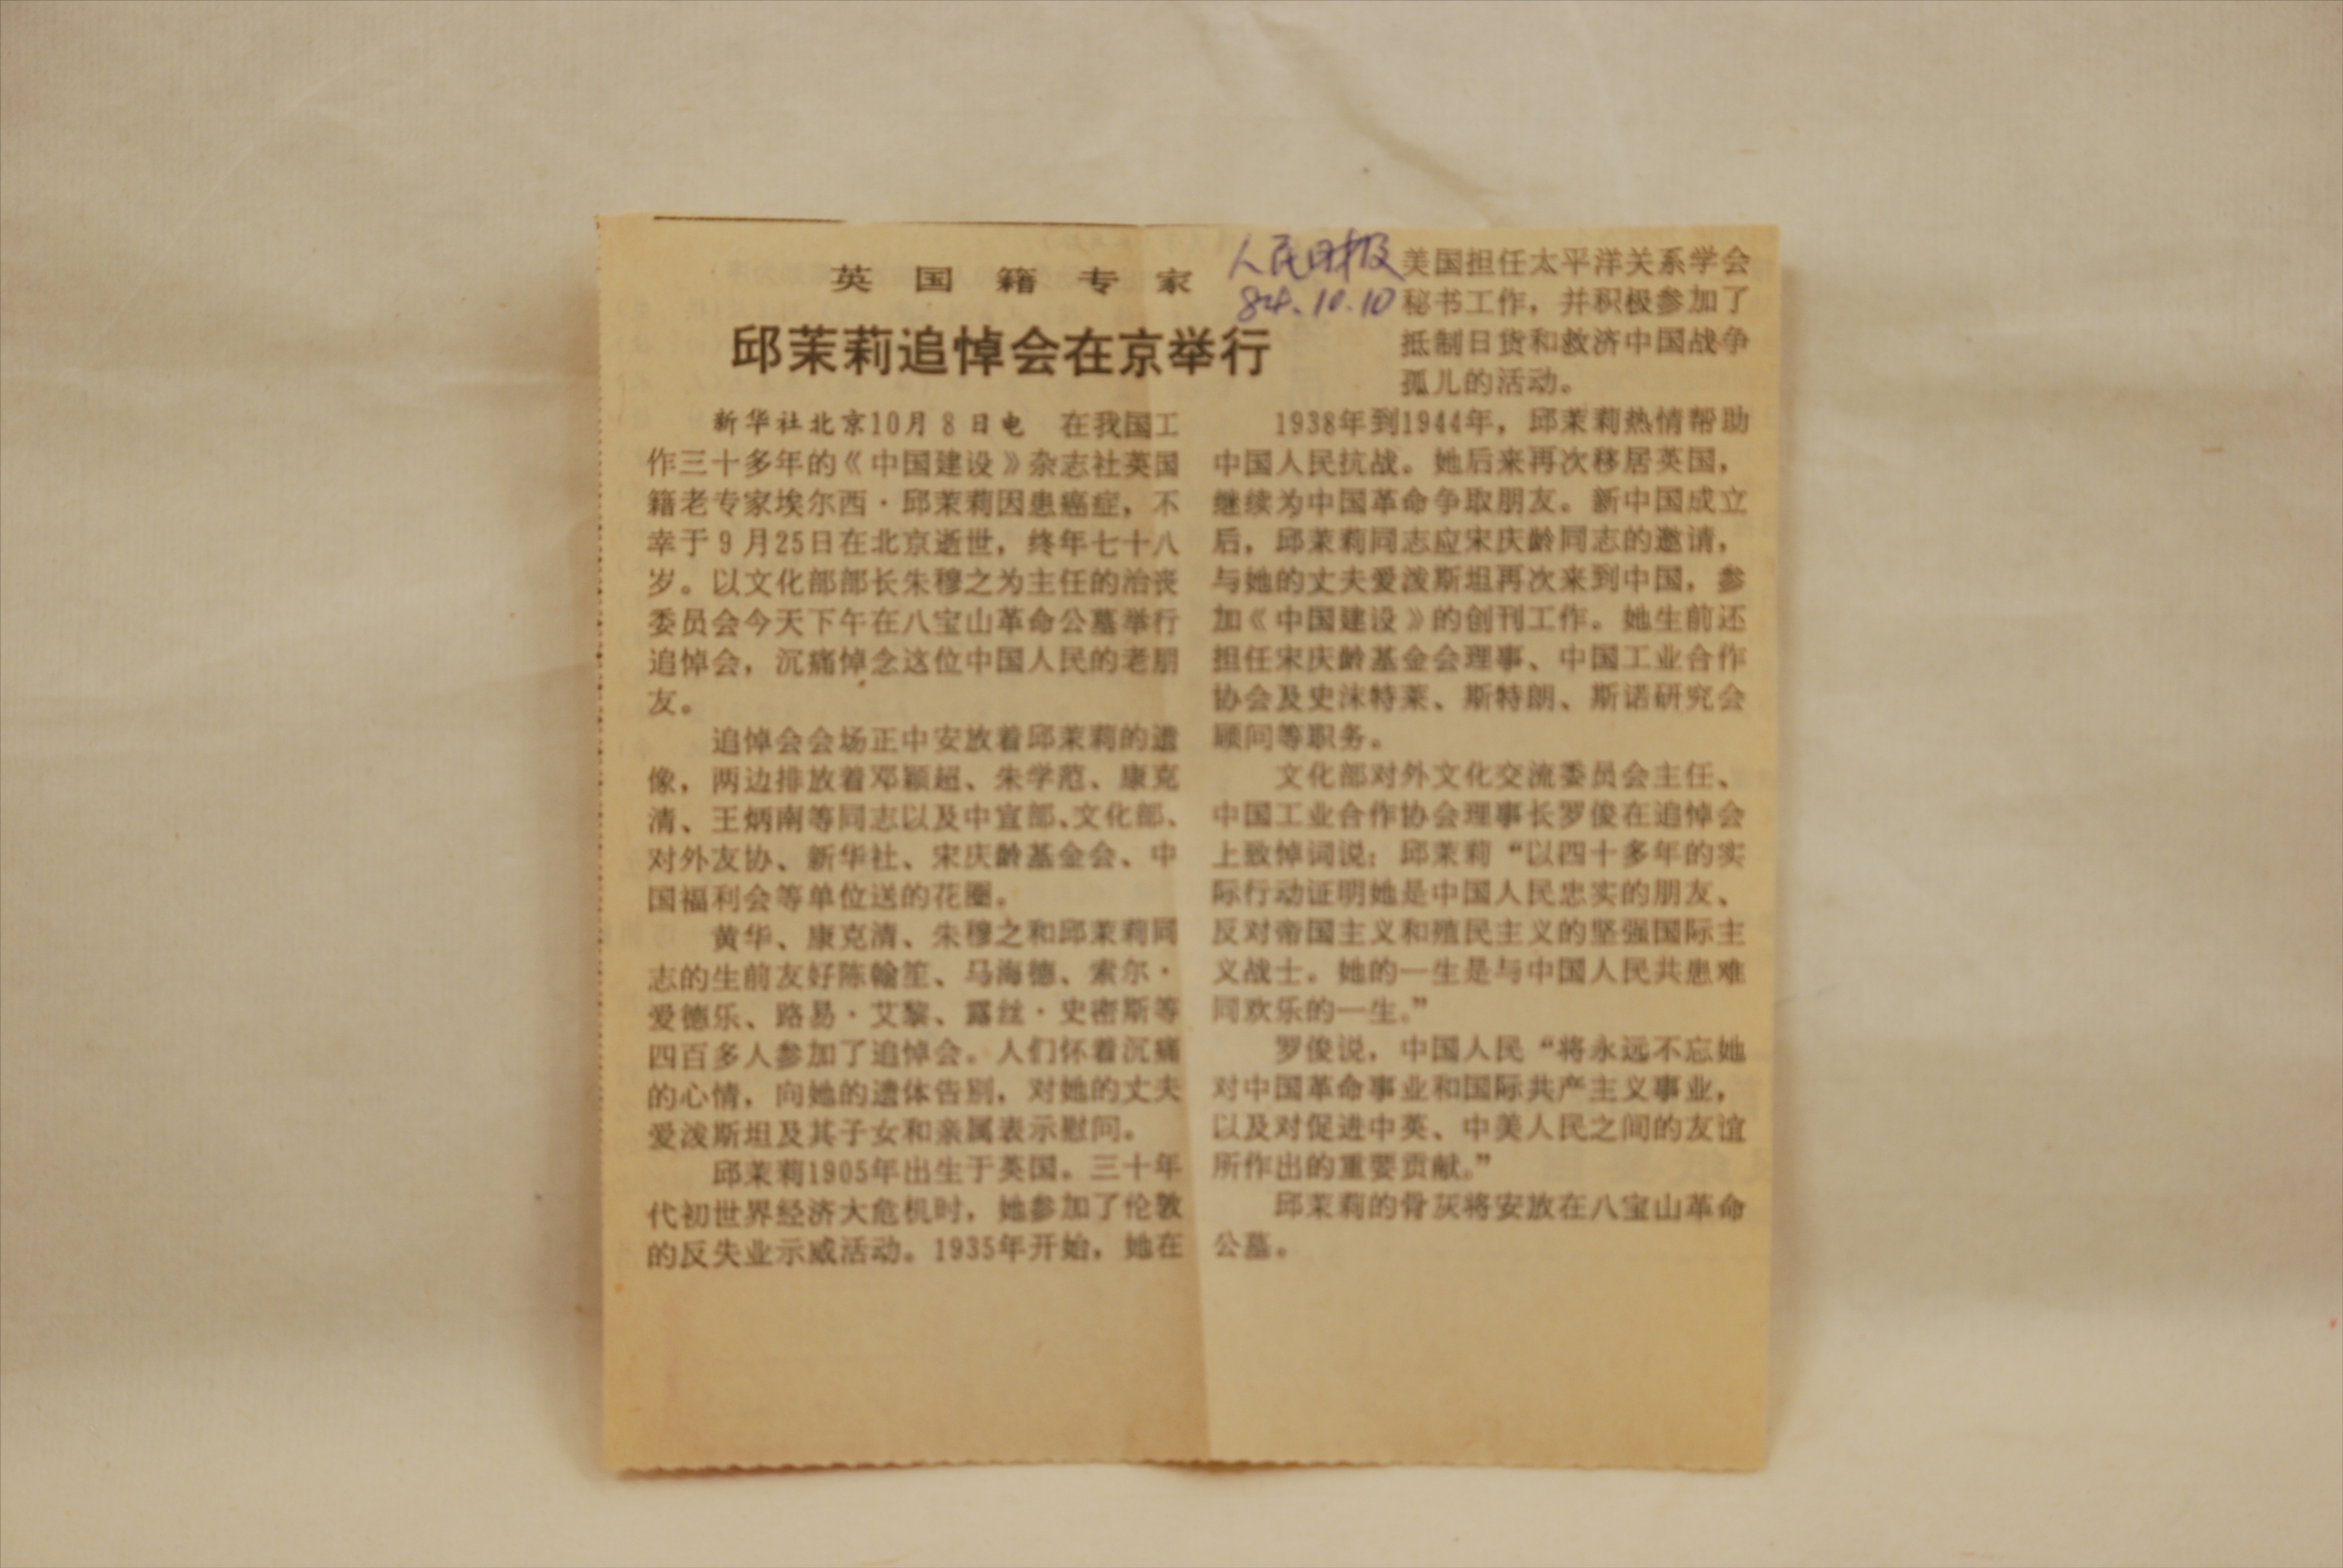 英国籍专家
邱茉莉追悼会在京举行
人民日报
84.10.10
新华社北京10月8日电　在我国工
作三十多年的《中国建设》杂志社英国
籍老专家埃尔西·邱茉莉因患癌症，不
幸于9月25日在北京逝世，终年七十八
岁。以文化部部长朱穆之为主任的治丧
委员会今天下午在八宝山革命公墓举行
追悼会，沉痛悼念这位中国人民的老朋
友。
追悼会会场正中安放着邱茉莉的遗
像，两边排放着邓颖超、朱学范、康克
清、王炳南等同志以及中宣部、文化部、
对外友协、新华社、宋庆龄基金会、中
国福利会等单位送的花圈。
黄华、康克清、朱穆之和邱茉莉同
志的生前友好陈翰笙、马海德、索尔·
爱德乐、路易·艾黎、露丝·史密斯等
四百多人参加了追悼会。人们怀着沉痛
的心情，向她的遗体告别，对她的丈夫
爱泼斯坦及其子女和亲属表示慰问。
邱茉莉1905年出生于英国。三十年
代初世界经济大危机时，她参加了伦敦
的反失业示威活动。1935年开始，她在
美国担任太平洋关系学会
秘书工作，并积极参加了
抵制日货和救济中国战争
孤儿的活动。
1938年到1944年，邱茉莉热情帮助
中国人民抗战。她后来再次移居英国，
继续为中国革命争取朋友。新中国成立
后，邱茉莉同志应宋庆龄同志的邀请，
与她的丈夫爱泼斯坦再次来到中国，参
加《中国建设》的创刊工作。她生前还
担任宋庆龄基金会理事、中国工业合作
协会及史沫特莱、斯特朗、斯诺研究会
顾问等职务。
文化部对外文化交流委员会主任、
中国工业合作协会理事长罗俊在追悼会
上致悼词说：邱茉莉“以四十多年的实
际行动证明她是中国人民忠实的朋友、
反对帝国主义和殖民主义的坚强国际主
义战士。她的一生是与中国人民共患难
同欢乐的一生。”
罗俊说，中国人民“将永远不忘她
对中国革命事业和国际共产主义事业，
以及对促进中英、中美人民之间的友谊
所作出的重要贡献。”
邱茉莉的骨灰将安放在八宝山革命
公墓。